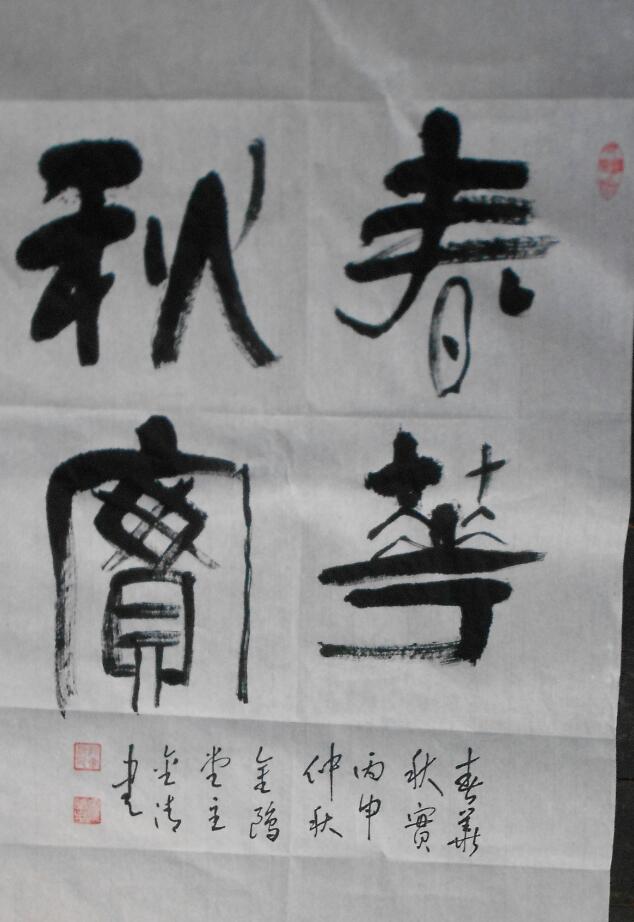 春華
秋實
春華
秋實
丙申
仲秋
金鷄
堂主
金清
書